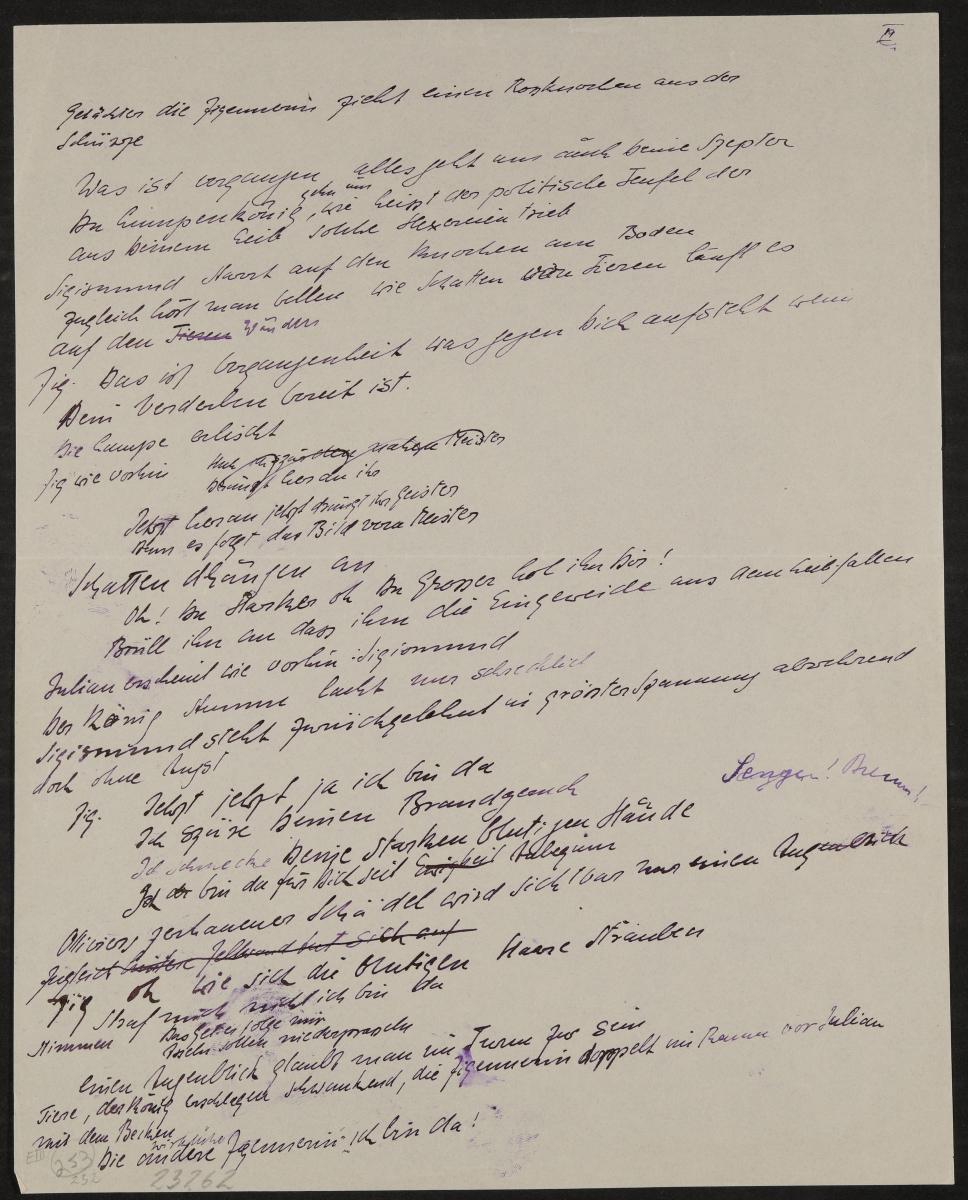 IV
Gelächter die Zigeunerin zieht einen Rossknochen aus der
Schürze
Was ist vergangen alles geht uns auch deine Szepter
gehn uns
Du Lumpenkönig, wie heisst der politische Teufel der
aus deinem Leib solche Hexereien trieb
Sigismund starrt auf den Knochen am Boden
zugleich hört man bellen wie Schatten von Tieren läuft es
auf den Tieren Wänden
Zig. Das ist Vergangenheit was gegen Dich aufsteht wenn
Dein Verderben bereit ist.
Die Lampe erlischt
Zig wie vorhin
Meister
heran du ihr
Jetzt heran jetzt drängt ihr Geister
Denn es folgt das Bild vom Meister
Schatten drängen an
Oh! Du Starker oh Du Grosser hol ihn Dir!
Brüll ihn an dass ihm die Eingeweide aus dem Leib fallen
Julian erscheint wie vorhin Sigismund
Der König stumm lacht nur schrecklich
Sigismund sieht zurückgelehnt in grösster Spannung abwehrend
doch ohne Angst
Zig. Jetzt jetzt ja ich bin da
Ich spüre Deinen Brandgeruch
Ich schmecke Deine starken blutigen Hände
Ich bin da für Dich seit Ewigkeit Anbeginn
Sengen! Brenn!
Oliviers zerhauener Schädel wird sichtbar nur einen Augenblick
zugleich hinten sich auf
Zig oh wie sich die blutigen Haare sträuben
Straf mich nicht ich bin da
Stimmen
folge mir
sollen niederprasseln
Einen Augenblick glaubt man im Turm zu sein
Tiere, der König erschlagen schwankend, die Zigeunerin doppelt im Raum vor Julian
mit dem Becken
wirkliche
Die andere Zigeunerin: ich bin da!
EIII
253
252
23262